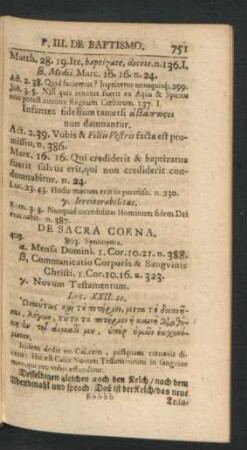 P. III. DE BAPTISMO. 751
Matth. 28. 19. Ite, baptizate, docete. n. 136. I.
β, Medii Marc. 16. 16. n. 24.
Act. 2. 38. Quid faciemus? baptizetur unusquisq;. 299.
Joh. 3. 5. Nisi quis renatus fuerit ex Aqua & Spiritu
non potest introire Regnum Cœlorum. 137. I.
Infantes fidelium tametsi
non damnantur.
Act. 2. 39. Vobis & Filiis Vestris facta est pro-
missio, n. 386.
Marc. 16. 16. Qui crediderit & baptizatus
fuerit salvus erit, qui non crediderit con-
demnabitur. n. 24.
Luc. 23. 43. Hodie mecum eris in paradiso. n. 230.
γ, Irriterabilitas.
Rom. 3. 3. Nunquid incredulitas Hominum fidem Dei
evacuabit. n. 387.
DE SACRA COENA.
409. 803. Synonyma.
α, Mensa Domini. 1. Cor. 10. 21. n. 388.
β, Communicatio Corporis & Sanguinis
Christi. 1. Cor. 10. 16. a. 323.
γ, Novum Testamentum.
Luc. XXII. 20.
Ὡσαύτως καὶ τὸ ποτήριον, μετὰ τὸ δειπνῆ-
σαι, λέγων, τῦτο τὸ ποτήριον ἡ καινὴ διαθήκη
ἐν τῷ αἵματί μου, ὑπὲρ ὑμῶν ἐκχυνό-
μενον.
Itidem dedit eis Calicem, postquam cœnavit di-
cens: Hic est Calix Novum Testamentum in sanguine
meo, qui pro vobis effunditur.
Desselbigen gleichen auch den Kelch / nach dem
Abendmahl und sprach: Das ist der Kelch / das neue
Bbbbb Testa-